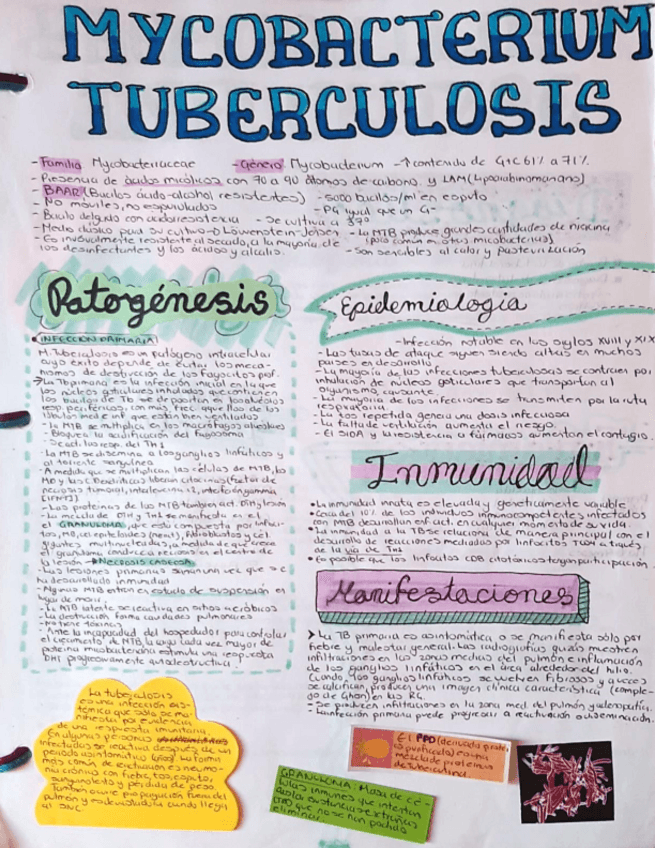 MYCOBACTERIUM
TUBERCULOSIS
- Familia Mycobacteriaceae - Género Mycobacterium - ↑contenido de G+C 61% a 71%
- Presencia de ácidos micólicos con 70 a 90 átomos de carbono y LAM (Lipoarabinomanano)
- BAAR (Bacilos ácido-alcohol resistentes) - 5000 bacilos/ml en esputo
- No móviles, no esporulados - PG igual que un G-
- Bacilo delgado con acidorresistencia - Se cultiva a 37°
- Medio clásico para su cultivo → Löwenstein-Jensen - La MTB produce grandes cantidades de niacina
(poco común en otras micobacterias)
- Es inusualmente resistente al secado, a la mayoría de
los desinfectantes y los ácidos y álcalis.
- Son sensibles al calor y pasteurización
Patogénesis
• INFECCIÓN PRIMARIA
M. Tuberculosis es un patógeno intracelular
cuyo éxito depende de evitar los meca-
nismos de destrucción de los fagocitos prof.
→ La Tb primaria es la infección inicial en la que
los núcleos goticulares inhalados que contienen
los bacilos de Tb se depositan en los alvéolos
resp periféricos, con más frec aquellos de los
lóbulos med e inf que están bien ventilados
- la MTB se multiplica en los macrófagos alveolares
- Bloquea la acidificación del fagosoma
resp. del TH1
- La MTB se disemina a los ganglios linfáticos y
al torrente sanguíneo
- A medida que se multiplican las células de MTB, los
MO y las C. Dendríticas liberan citocinas (factor de
necrosis tumoral, interleucina 12, interferón gamma
[IFNγ])
- Las proteínas de las MTB también act. DTH y lesión
- La mezcla de DTH y TH1 se manifiesta en el
el GRANULOMA, que está compuesto por linfoci-
tos, MO, cel epiteliales (mem), fibroblastos y cel
gigantes multinucleadas, a medida que crece
el granuloma conduce a necrosis en el centro de
la lesión → NECROSIS CASEOSA
- Las lesiones primarias sanan una vez que se
ha desarrollado inmunidad
- Algunas MTB entran en estado de suspensión en
lugar de morir.
- La MTB latente se reactiva en sitios aeróbicos
- La destrucción forma cavidades pulmonares
- No tiene toxinas
- Ante la incapacidad del hospedador para controlar
el crecimiento de MTB, la carga cada vez mayor de
proteína micobacteriana estimula una respuesta
DHT progresivamente autodestructiva.
Epidemiología
- Infección notable en los siglos XVIII y XIX
- Las tasas de ataque siguen siendo altas en muchos
países en desarrollo
- La mayoría de las infecciones tuberculosas se contraen por
inhalación de núcleos goticulares que transportan al
organismo causante
- La mayoría de las infecciones se transmiten por la ruta
respiratoria.
- La tos repetida genera una dosis infecciosa
- La falta de ventilación aumenta el riesgo.
- El SIDA y la resistencia a fármacos aumentan el contagio.
Inmunidad
• La inmunidad innata es elevada y genéticamente variable
• Cerca del 10% de los individuos inmunocompetentes infectados
con MTB desarrollan enf. act. en cualquier momento de su vida.
• La inmunidad a la TB se relaciona de manera principal con el
desarrollo de reacciones mediadas por linfocitos TCD4 a través
de la vía de TH1
• Es posible que los linfocitos CD8 citotóxicos tengan participación.
Manifestaciones
➤ La TB primaria es asintomática o se manifiesta sólo por
fiebre y malestar general. Las radiografías quizás muestren
infiltraciones en las zonas medias del pulmón e inflamación
de los ganglios linfáticos en el área alrededor del hilio.
Cuando los ganglios linfáticos se vuelven fibrosos y a veces
se calcifican, producen una imagen clínica característica (comple-
jo de Ghon) en las RG.
- Se producen infiltraciones en la zona med. del pulmón y adenopatía.
- La infección primaria puede progresar a reactivación o diseminación.
La tuberculosis
es una infección sis-
témica que sólo se ma-
nifiesta por evidencia
de una respuesta inmunitaria.
En algunas personas
infectadas se reactiva después de un
periodo asintomático (años). La forma
más común de reactivación es neumo-
nía crónica con fiebre, tos, esputo
sanguinolento y pérdida de peso.
También ocurre propagación fuera del
pulmón y es devastadora cuando llega
al SNC
El PPD (derivado proté-
ico purificado) es una
mezcla de proteínas
de tuberculina.
GRANULOMA: Masa de cé-
lulas inmunes que intentan
aislar sustancias extrañas
que no se han podido
eliminar.